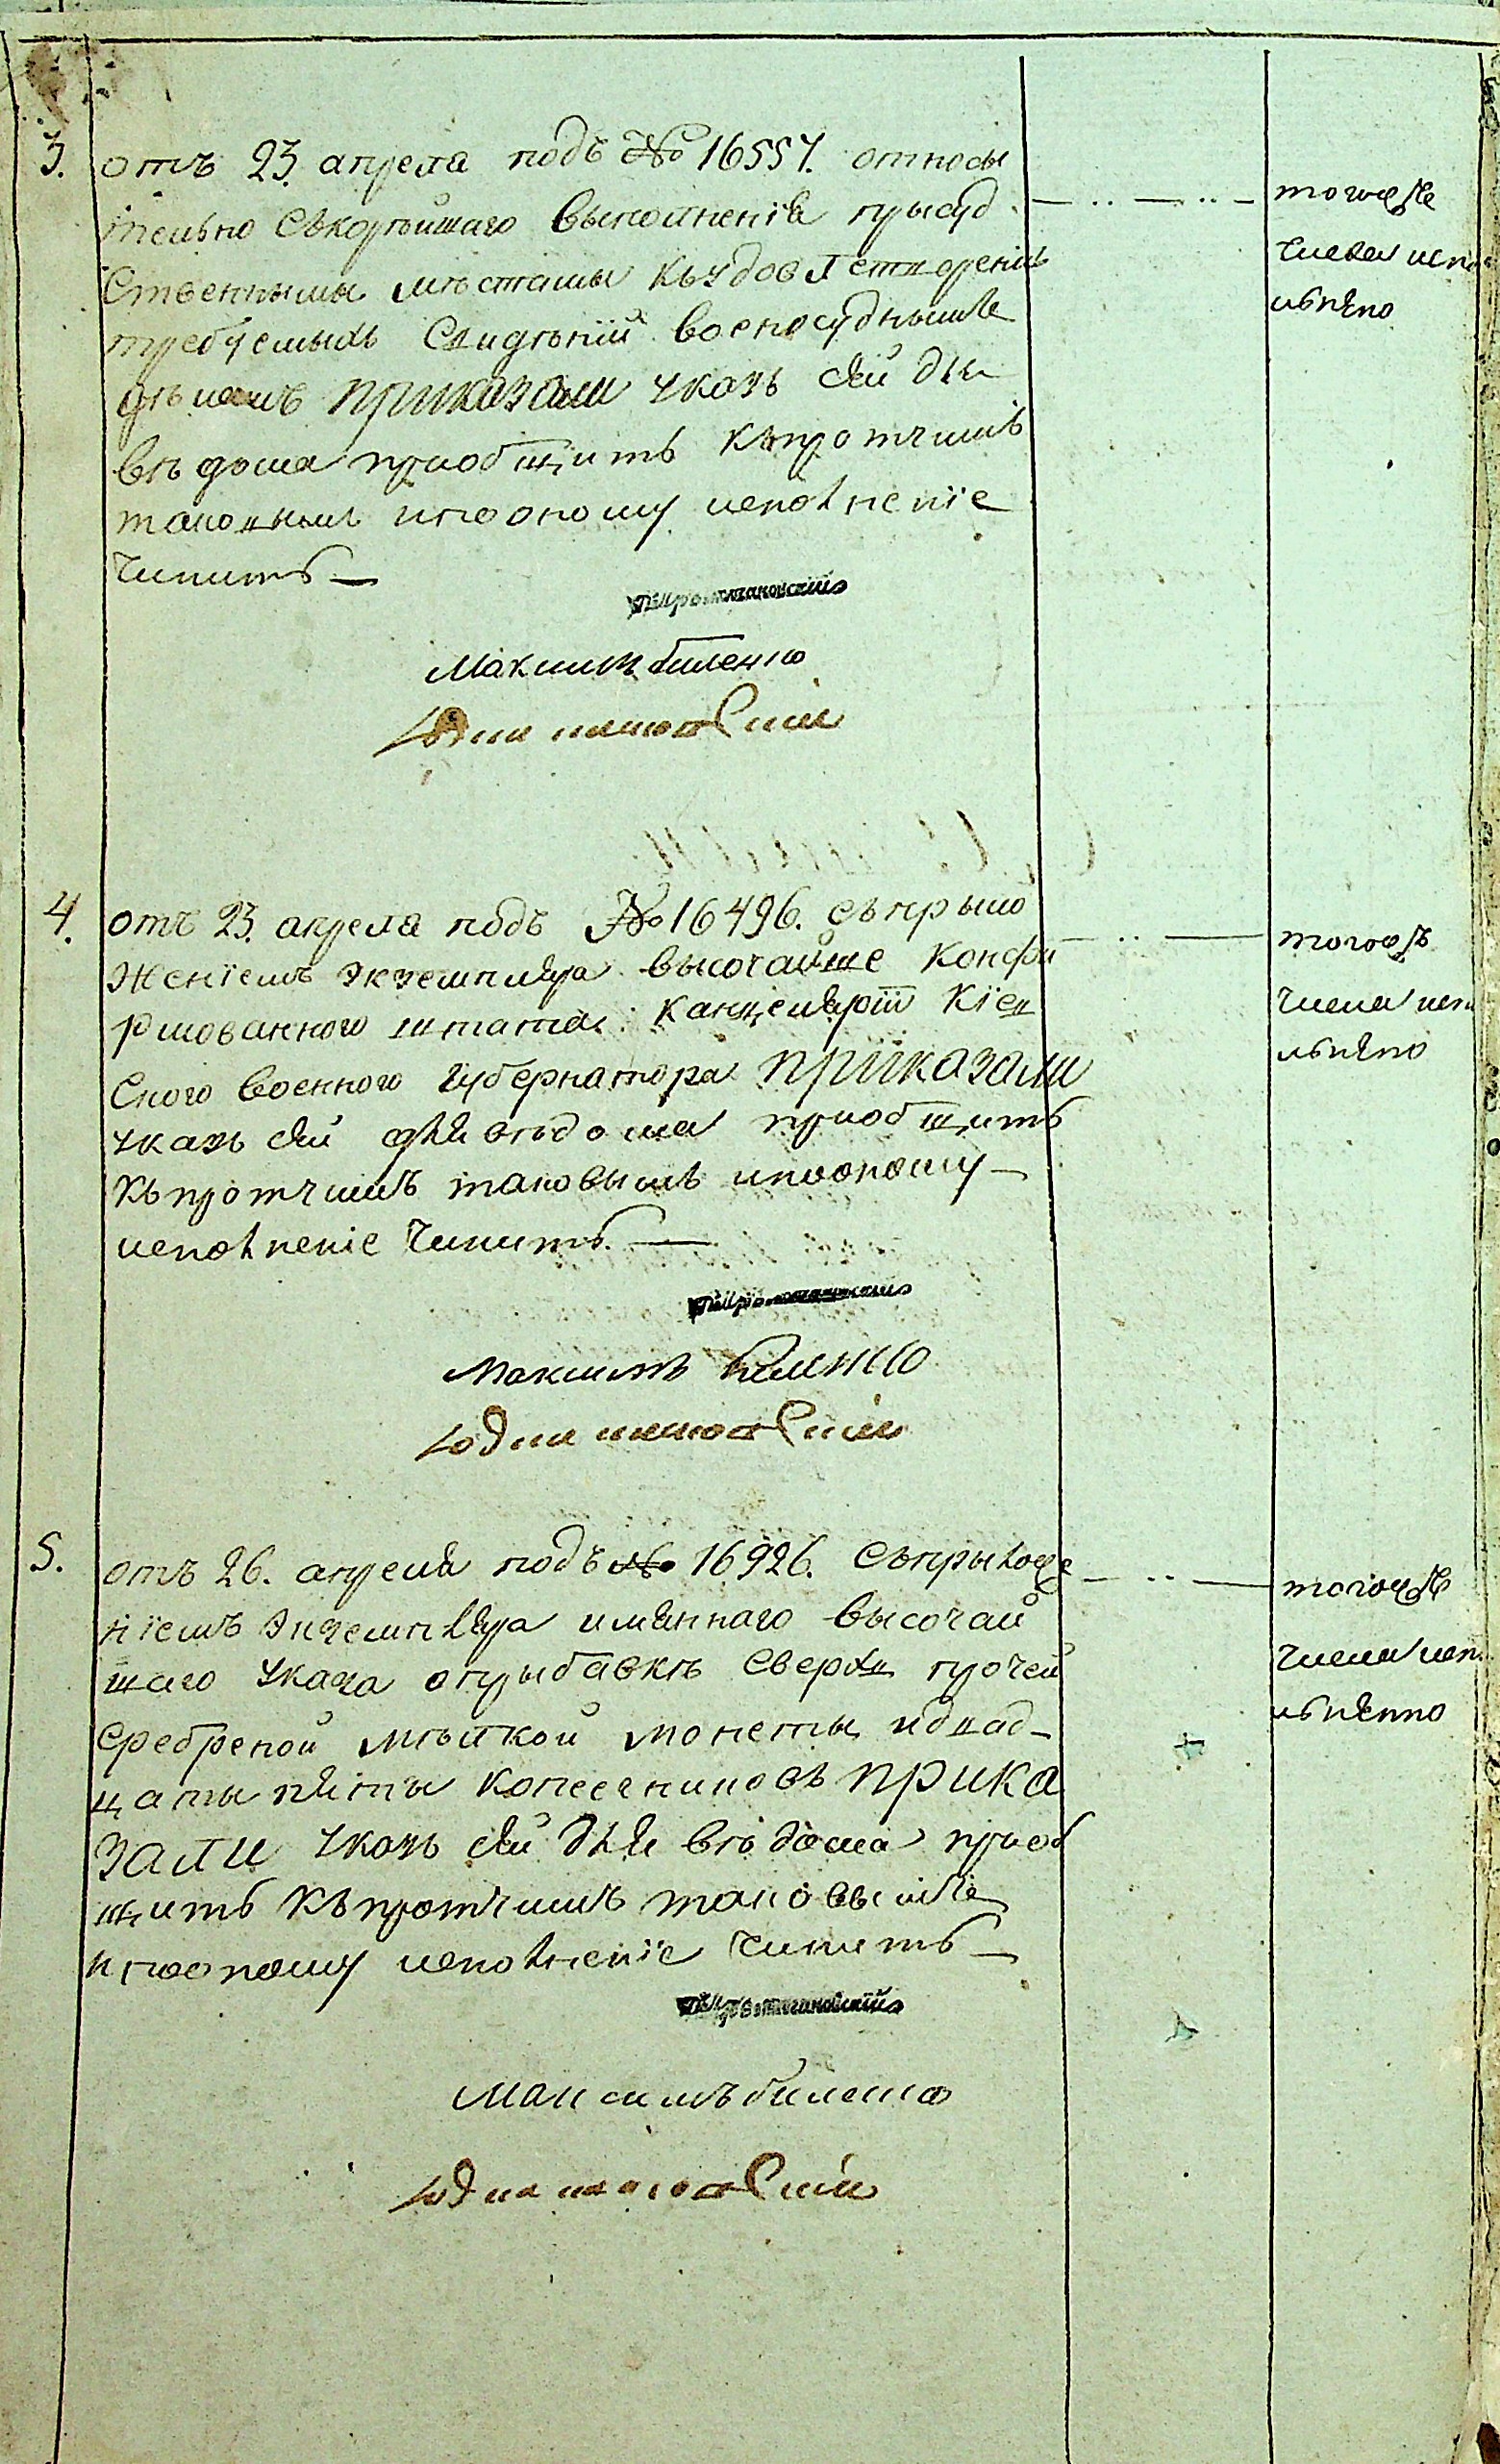 3. отъ 23. апреля подъ № 16557. относы
тельно скорѣйшаго выполненія прысуд
ственнымы мѣстамы къудовлетворенію
требуемыхъ свидѣній военосуднымъ
дѣламъ приказали указъ сей для
вѣдома приобщить къпротчимъ
таковымъ ипооному исполненіе
чинить —
тогожъ
числа испо
лнѣно
Максимъ биленко
4. отъ 23. апреля подъ № 16496. съпрыло
женіемъ экземпляра высочайше конфи
рмованного штата канцеляріи кіев
ского военного губернатора приказали
указъ сей для вѣдома приобщить
къпротчимъ таковымъ ипооному —
исполненіе чинить. —
тогожъ
числа испо
лнѣно
Максимъ биленко
5. отъ 26. апреля подъ № 16926. съпрыложе
ніемъ экземпляра имяннаго высочай
шаго указа опрыбавкѣ сверхъ прочей
сребреной мѣлкой монеты идвад-
цаты пяты копеечниковъ прика
зали указъ сей для вѣдома приоб
щить къпротчимъ таковымъ
ипооному исполненіе чинить —
тогожъ
числа исп
лнѣнно
Максимъ биленко